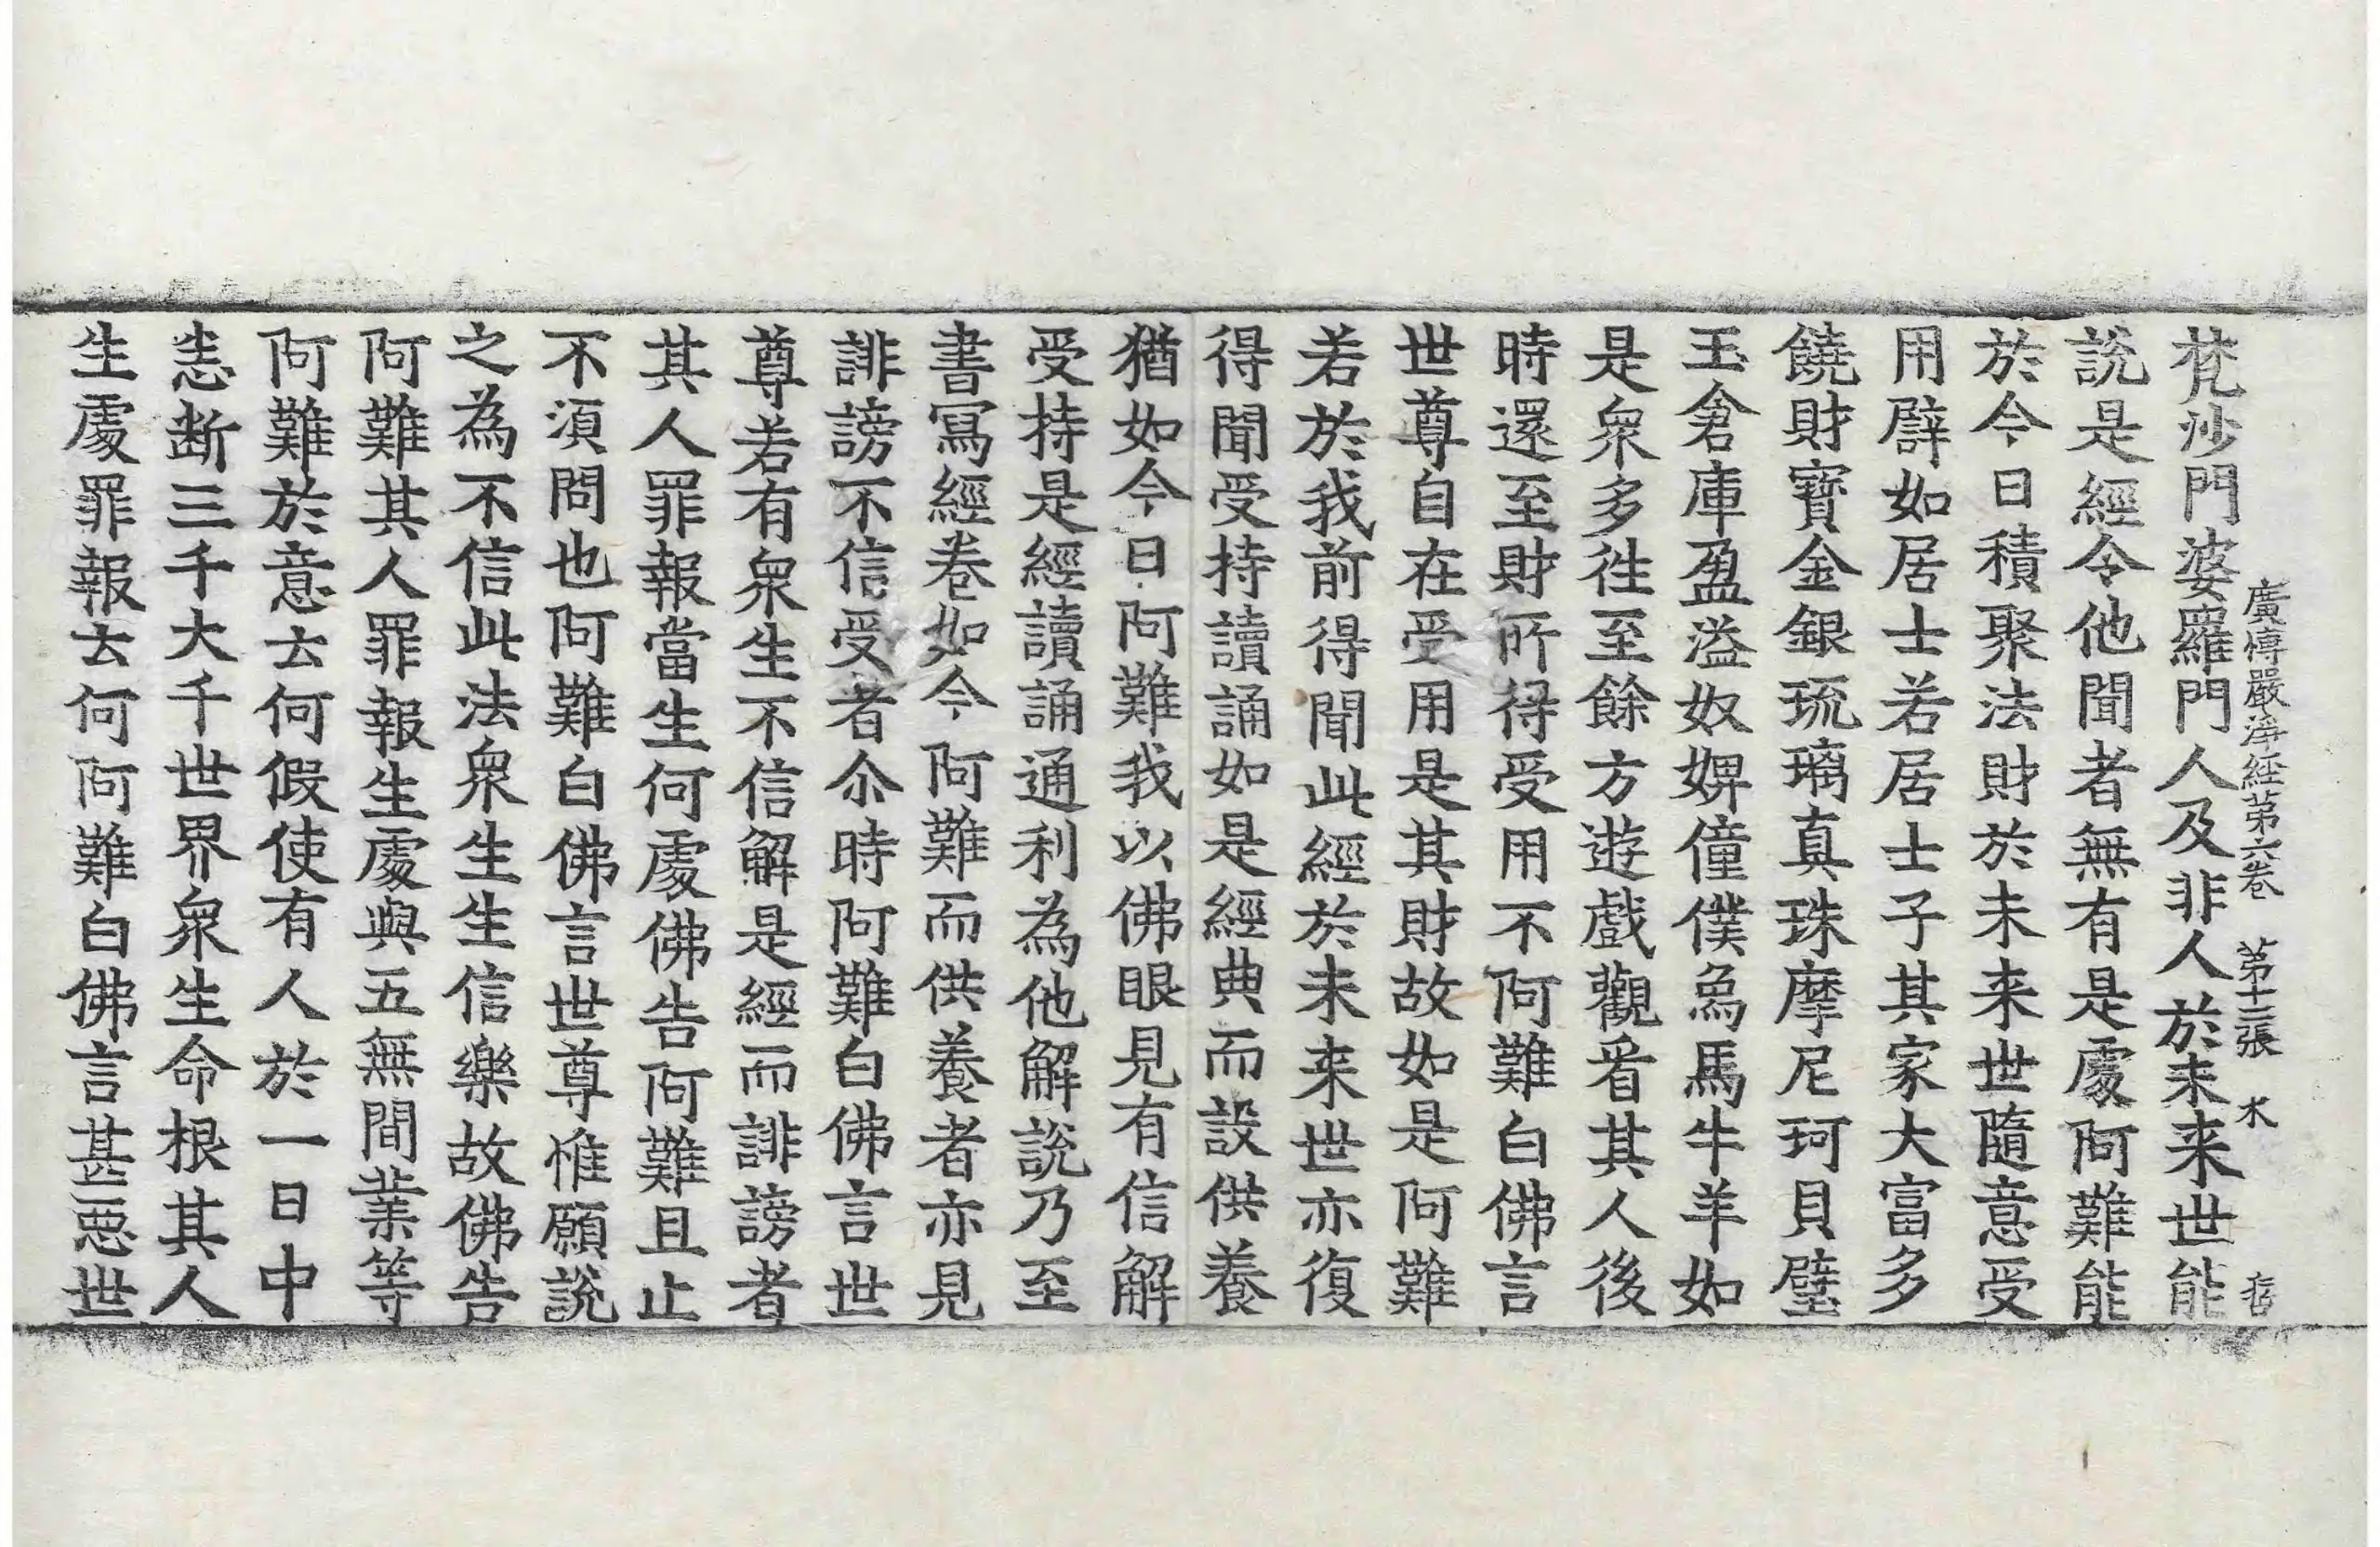 廣博嚴淨經第六卷　第十三張　木
梵沙門婆羅門人及非人於未来世能
說是經令他聞者無有是處阿難能
於今日積聚法財於未来世隨意受
用譬如居士若居士子其家大富多
饒財寶金銀琉璃真珠摩尼珂貝璧
玉倉庫盈溢奴婢僮僕象馬牛羊如
是衆多往至餘方遊戲觀看其人後
時還至財所得受用不阿難白佛言
世尊自在受用是其財故如是阿難
若於我前得聞此經於未来世亦復
得聞受持讀誦如是經典而設供養
猶如今日阿難我以佛眼見有信解
受持是經讀誦通利為他解說乃至
書寫經卷如今阿難而供養者亦見
誹謗不信受者尒時阿難白佛言世
尊若有衆生不信解是經而誹謗者
其人罪報當生何處佛告阿難且止
不須問也阿難白佛言世尊惟願說
之為不信此法衆生生信樂故佛告
阿難其人罪報生處與五無間業等
阿難於意云何假使有人於一日中
恚断三千大千世界衆生命根其人
生處罪報云何阿難白佛言甚惡世